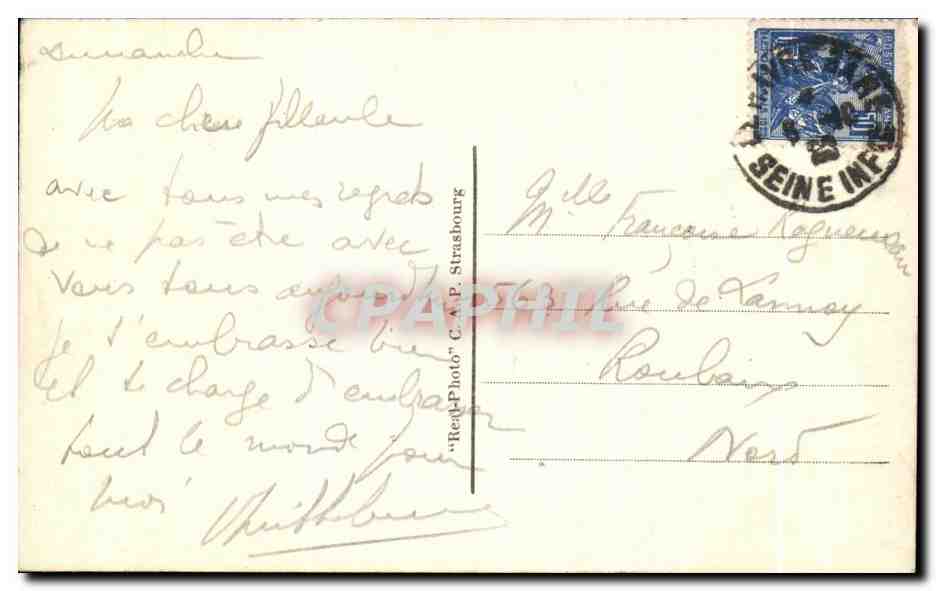 Dimanche
Ma chère filleule
avec tous mes regrets
de ne pas être avec
vous tous aujourd'hui
je t'embrasse bien
et te charge d'embrasser
tout le monde pour
moi
"Real-Photo" C. A. P. Strasbourg
CPAPHIL
SEINE INF
Mlle Françoise Ragueneau
563 Rue de Lannoy
Roubaix
Nord